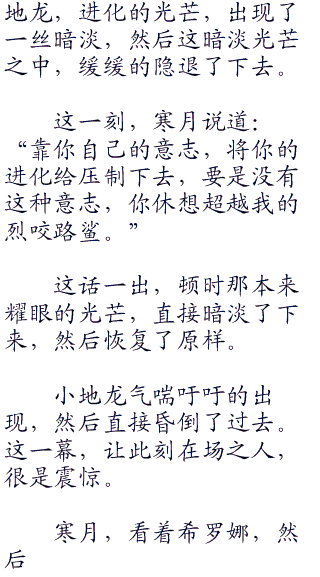 地龙，进化的光芒，出现了
一丝暗淡，然后这暗淡光芒
之中，缓缓的隐退了下去。
这一刻，寒月说道：
“靠你自己的意志，将你的
进化给压制下去，要是没有
这种意志，你休想超越我的
烈咬路鲨。”
这话一出，顿时那本来
耀眼的光芒，直接暗淡了下
来，然后恢复了原样。
小地龙气喘吁吁的出
现，然后直接昏倒了过去。
这一幕，让此刻在场之人，
很是震惊。
寒月，看着希罗娜，然
后